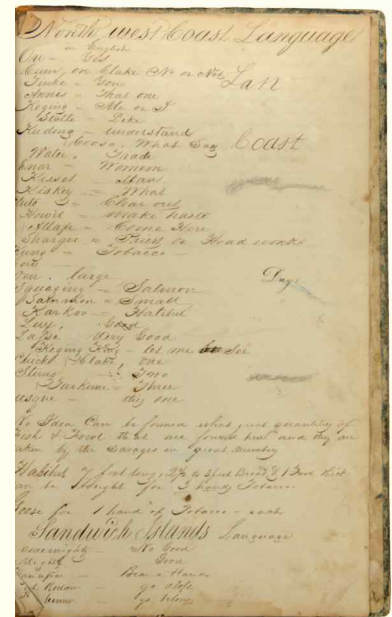 North west Coast Language
in English
Ou - Yes
Cum, or Clake No or Not
Lan
Tunke - You
Annis - That one
Keging - Me or I
Statle - Like
Kuding - understand
Coosa, What Say
Coast
Water, Trade
Enar - Womem
Kisset - Man
Kiskey - What
Clear out
Howit - Make haste
Attape - Come Here
Shargee = Priest or Head
Tobacco -
large
Days
Squaging = Salmon
Salmmon = Small
Karkoo = Halibut
Luy, Good
Lasse Very Good
Keging King - let me See
Clake, one
Stung - Two
Three
- this one
No Idea Can be formed what great quantity of
Fish & Fowl that are found here and they are
taken by the Savages in great number
Halibut 7 feet long, 2½ to 3 feet Broad & 1 Foot thick
can be bought for 3 hands Tobacco
Geese for 1 hand of Tobacco - each
Sandwich Islands Language
- No Good
- Good
- Bear a Hand
- go aloft
- go below